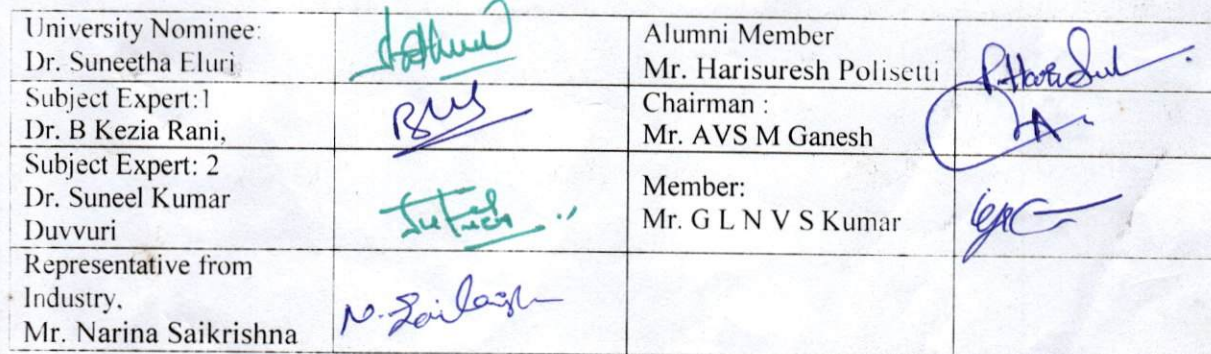 University Nominee:
Dr. Suneetha Eluri
Alumni Member
Mr. Harisuresh Polisetti
Subject Expert:1
Dr. B Kezia Rani,
Chairman :
Mr. AVS M Ganesh
Subject Expert: 2
Dr. Suneel Kumar
Duvvuri
Member:
Mr. G L N V S Kumar
Representative from
Industry.
Mr. Narina Saikrishna